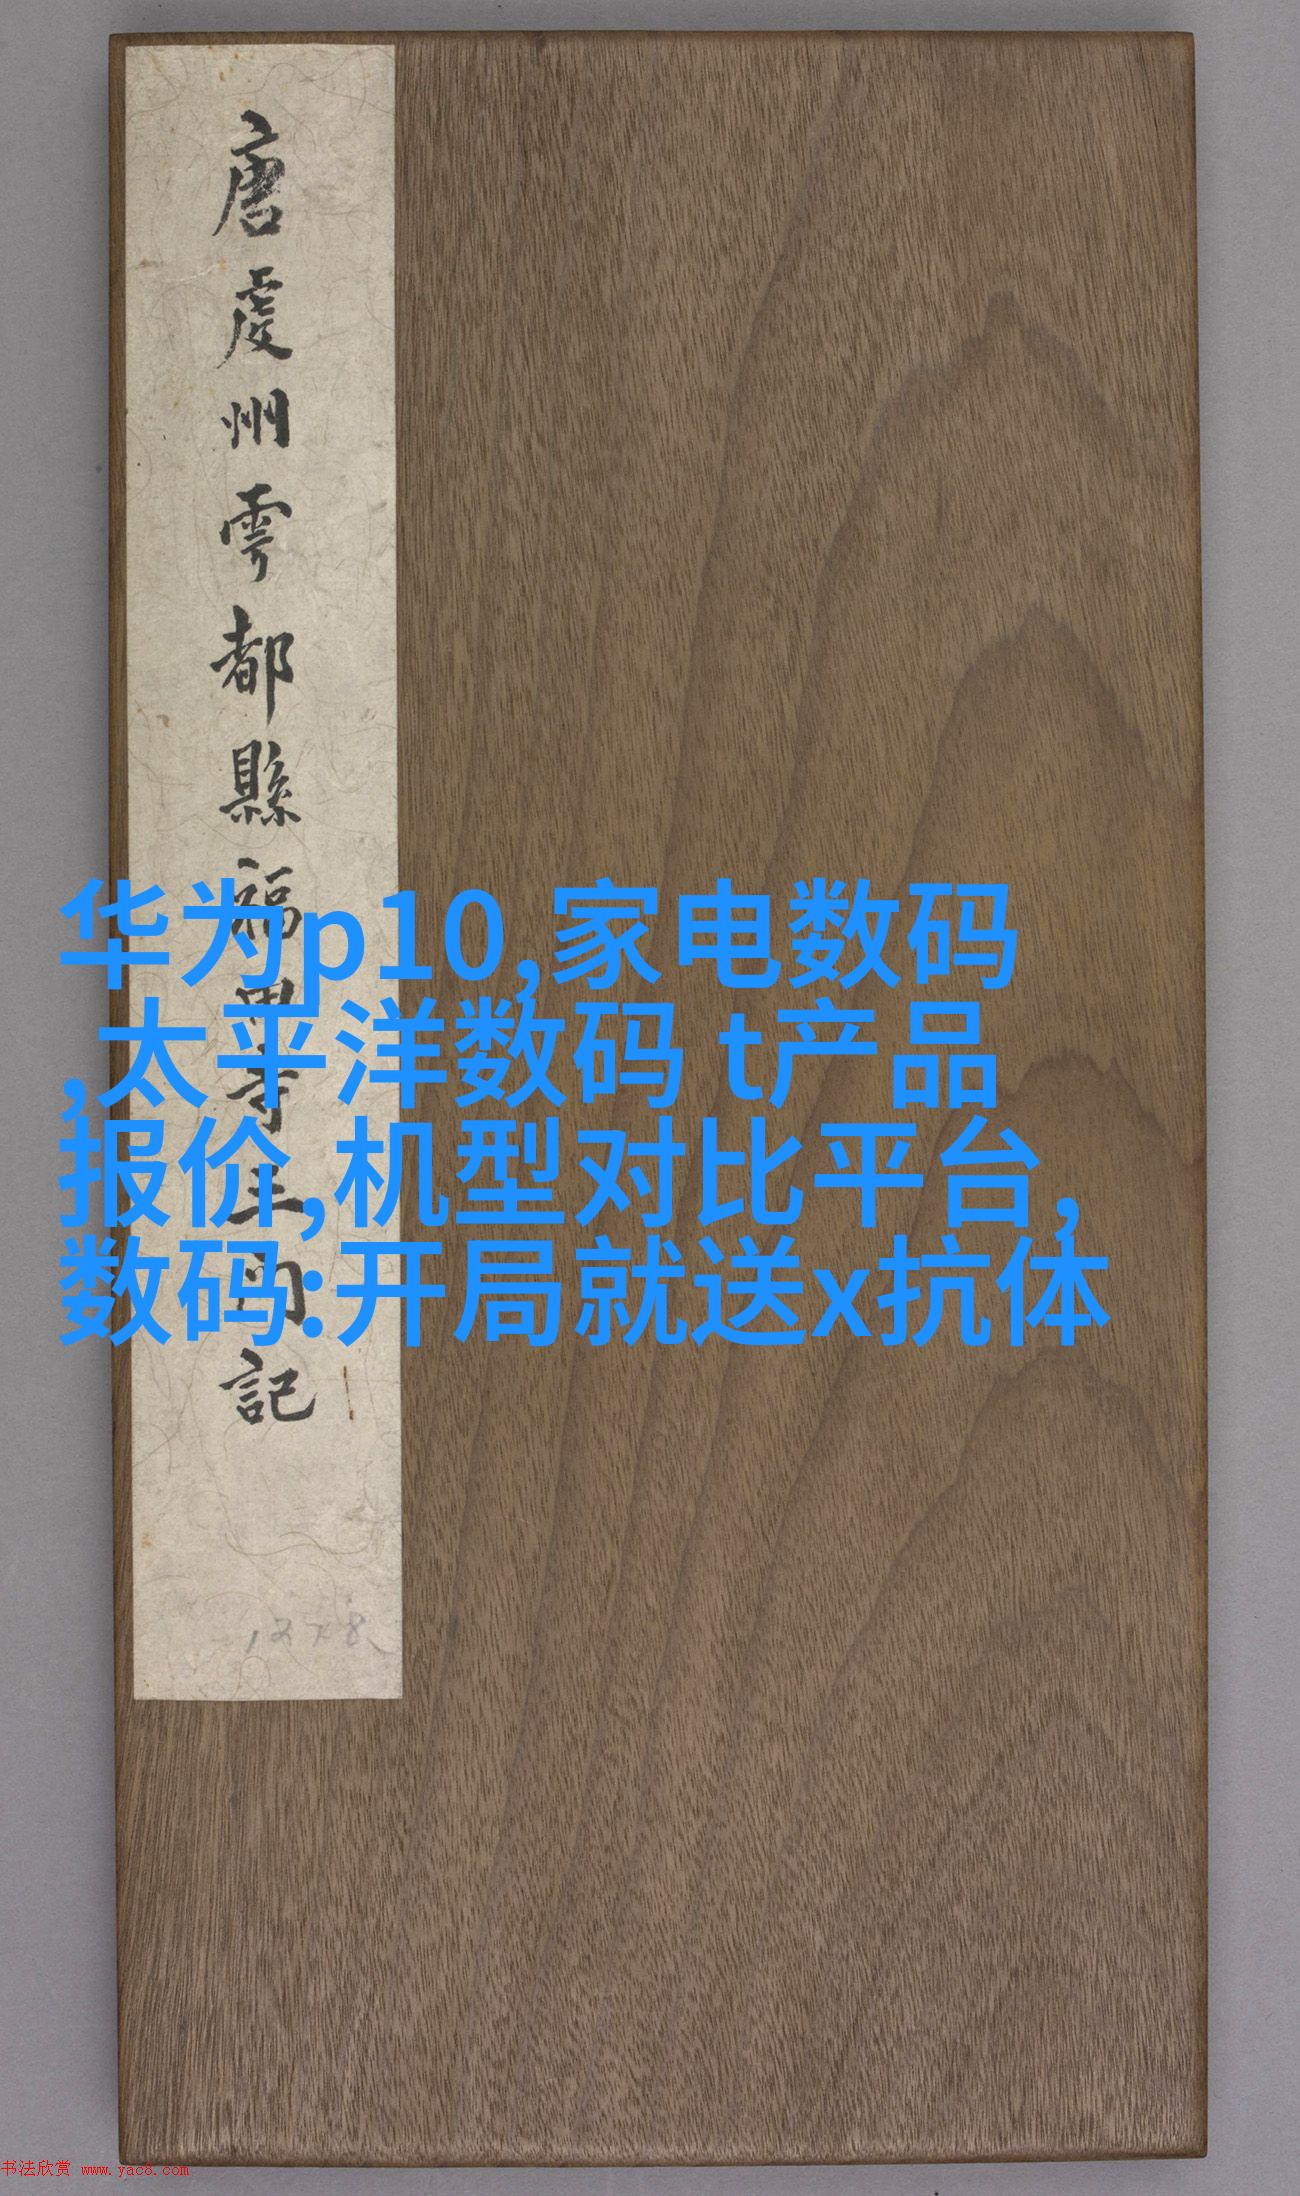 唐虔州雩都縣福田寺三門記
华为p10,家电数码
,太平洋数码 t产品
报价,机型对比平台,
数码:开局就送x抗体
书法欣赏 www.yac8.com